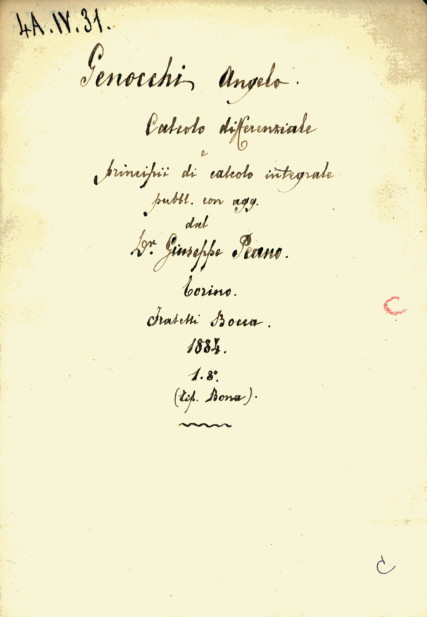 4A.IV.31.
Genocchi Angelo.
Calcolo differenziale
e
principii di calcolo integrale
pubbl. con agg.
dal
Dr. Giuseppe Peano.
Torino.
Fratelli Bocca.
1884.
1. 8°.
(tip. Bona).
C
C